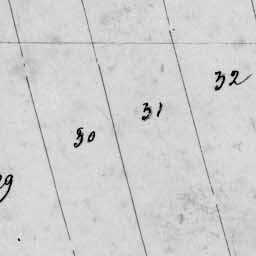 32
31
30
29